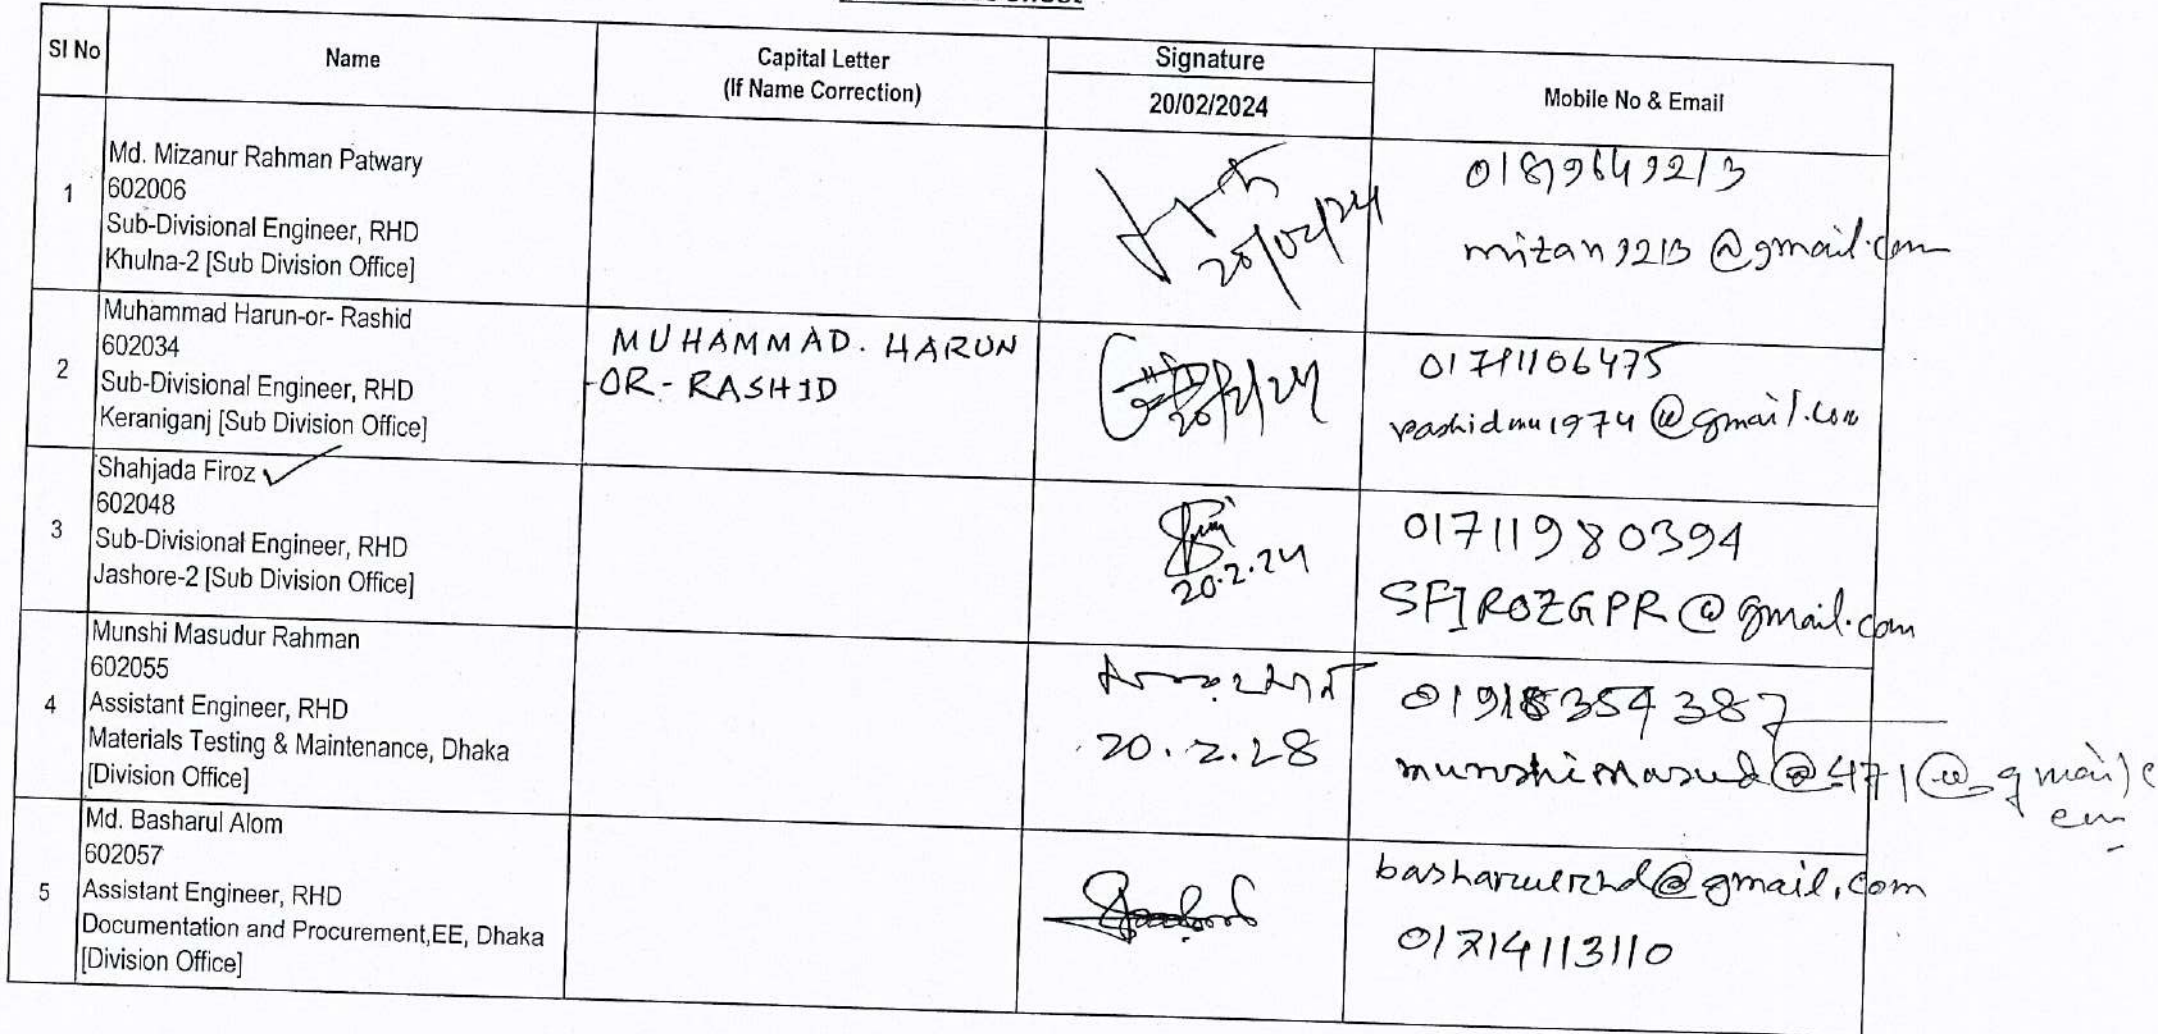 Sl No
Name
Capital Letter
(If Name Correction)
Signature
20/02/2024
Mobile No & Email
1
Md. Mizanur Rahman Patwary
602006
Sub-Divisional Engineer, RHD
Khulna-2 [Sub Division Office]
20/02/24
mizan9213@gmail.com
2
Muhammad Harun-or- Rashid
602034
Sub-Divisional Engineer, RHD
Keraniganj [Sub Division Office]
MUHAMMAD. HARUN
-OR-RASHID
20/2/24
@gmail.com
3
Shahjada Firoz
602048
Sub-Divisional Engineer, RHD
Jashore-2 [Sub Division Office]
20.2.24
01711980394
SFIROZGPR@gmail.com
4
Munshi Masudur Rahman
602055
Assistant Engineer, RHD
Materials Testing & Maintenance, Dhaka
[Division Office]
20.2.28
5
Md. Basharul Alom
602057
Assistant Engineer, RHD
Documentation and Procurement,EE, Dhaka
[Division Office]
basharulrhd@gmail.com
01714113110